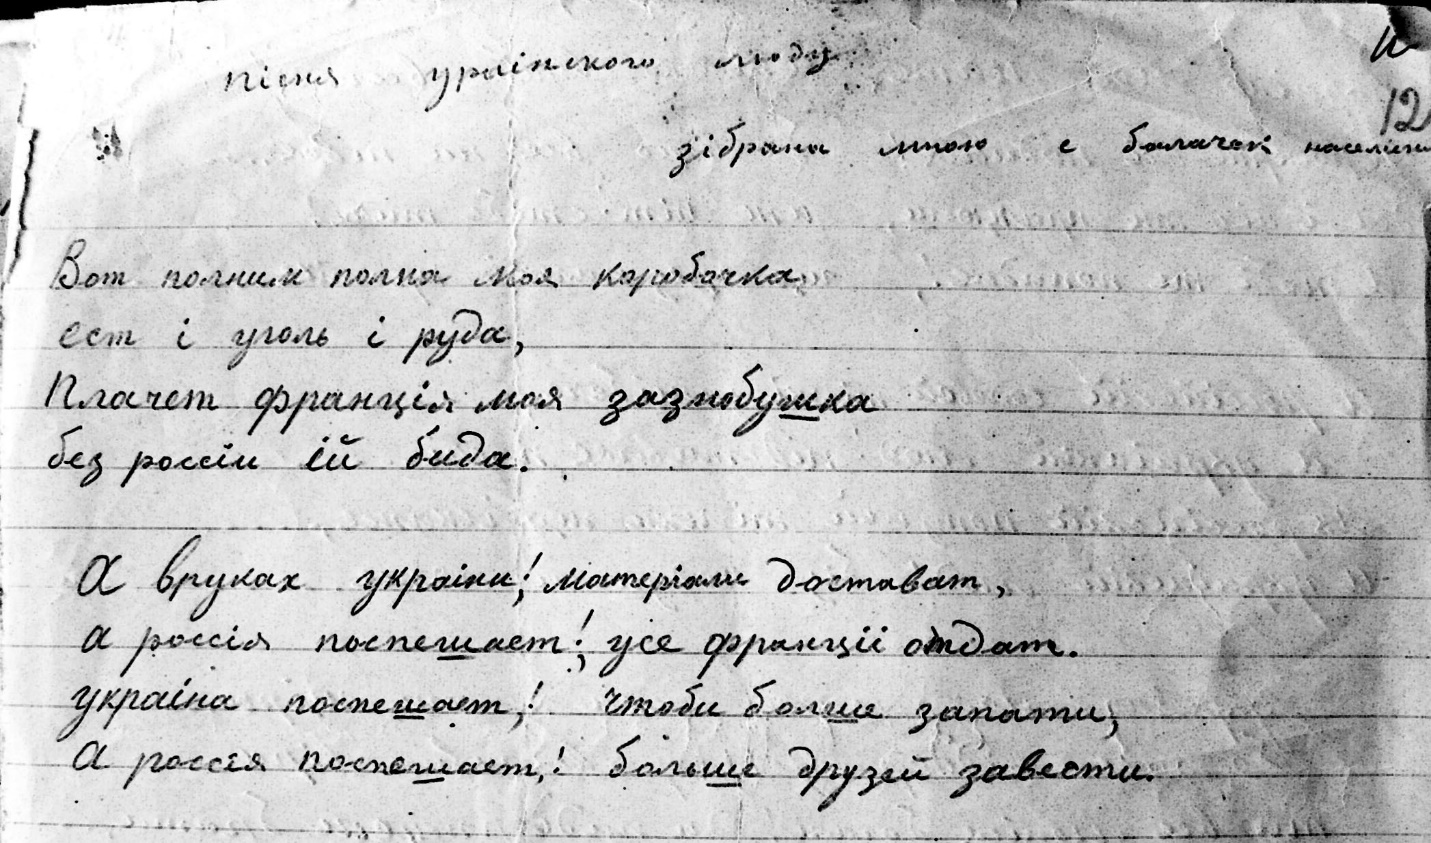 пісня țраінского люду
12
зібрана мною с балачок населіния
Вот полним полна моя коробачка
ест і уголь і руда,
Плачет франція моя зазнобушка
без россіи ій бида.
А вруках украіни! матеріали достават,
а россія поспешает! усе франціі отдат.
украіна поспешает,! чтоби болше запати,
а россея поспешает,! больше друзей завести.